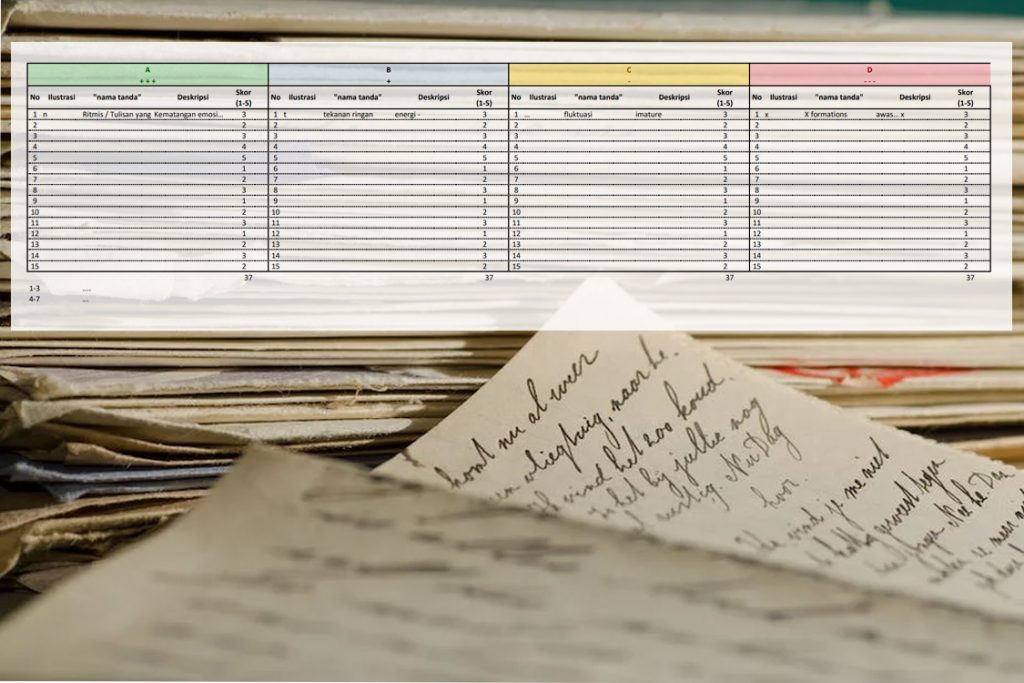 A B C D
+ + + + - - - -
No Ilustrasi "nama tanda" Deskripsi Skor (1-5) No Ilustrasi "nama tanda" Deskripsi Skor (1-5) No Ilustrasi "nama tanda" Deskripsi Skor (1-5) No Ilustrasi "nama tanda" Deskripsi Skor (1-5)
1 n Ritmis / Tulisan yang Kematangan emosi... 3 1 t tekanan ringan energi - 3 1 ... fluktuasi imature 3 1 x X formations awas... x 3
2 2 2 2 2 2 2 2
3 3 3 3 3 3 3 3
4 4 4 4 4 4 4 4
5 5 5 5 5 5 5 5
6 1 6 1 6 1 6 1
7 2 7 2 7 2 7 2
8 3 8 3 8 3 8 3
9 1 9 1 9 1 9 1
10 2 10 2 10 2 10 2
11 3 11 3 11 3 11 3
12 1 12 1 12 1 12 1
13 2 13 2 13 2 13 2
14 3 14 3 14 3 14 3
15 2 15 2 15 2 15 2
37 37 37 37
1-3 ....
4-7 ...
komt nu al weer
naar
vind het zoo koud.
het bij jullie nog
rustig. Dag
hoor.
vind je me niet